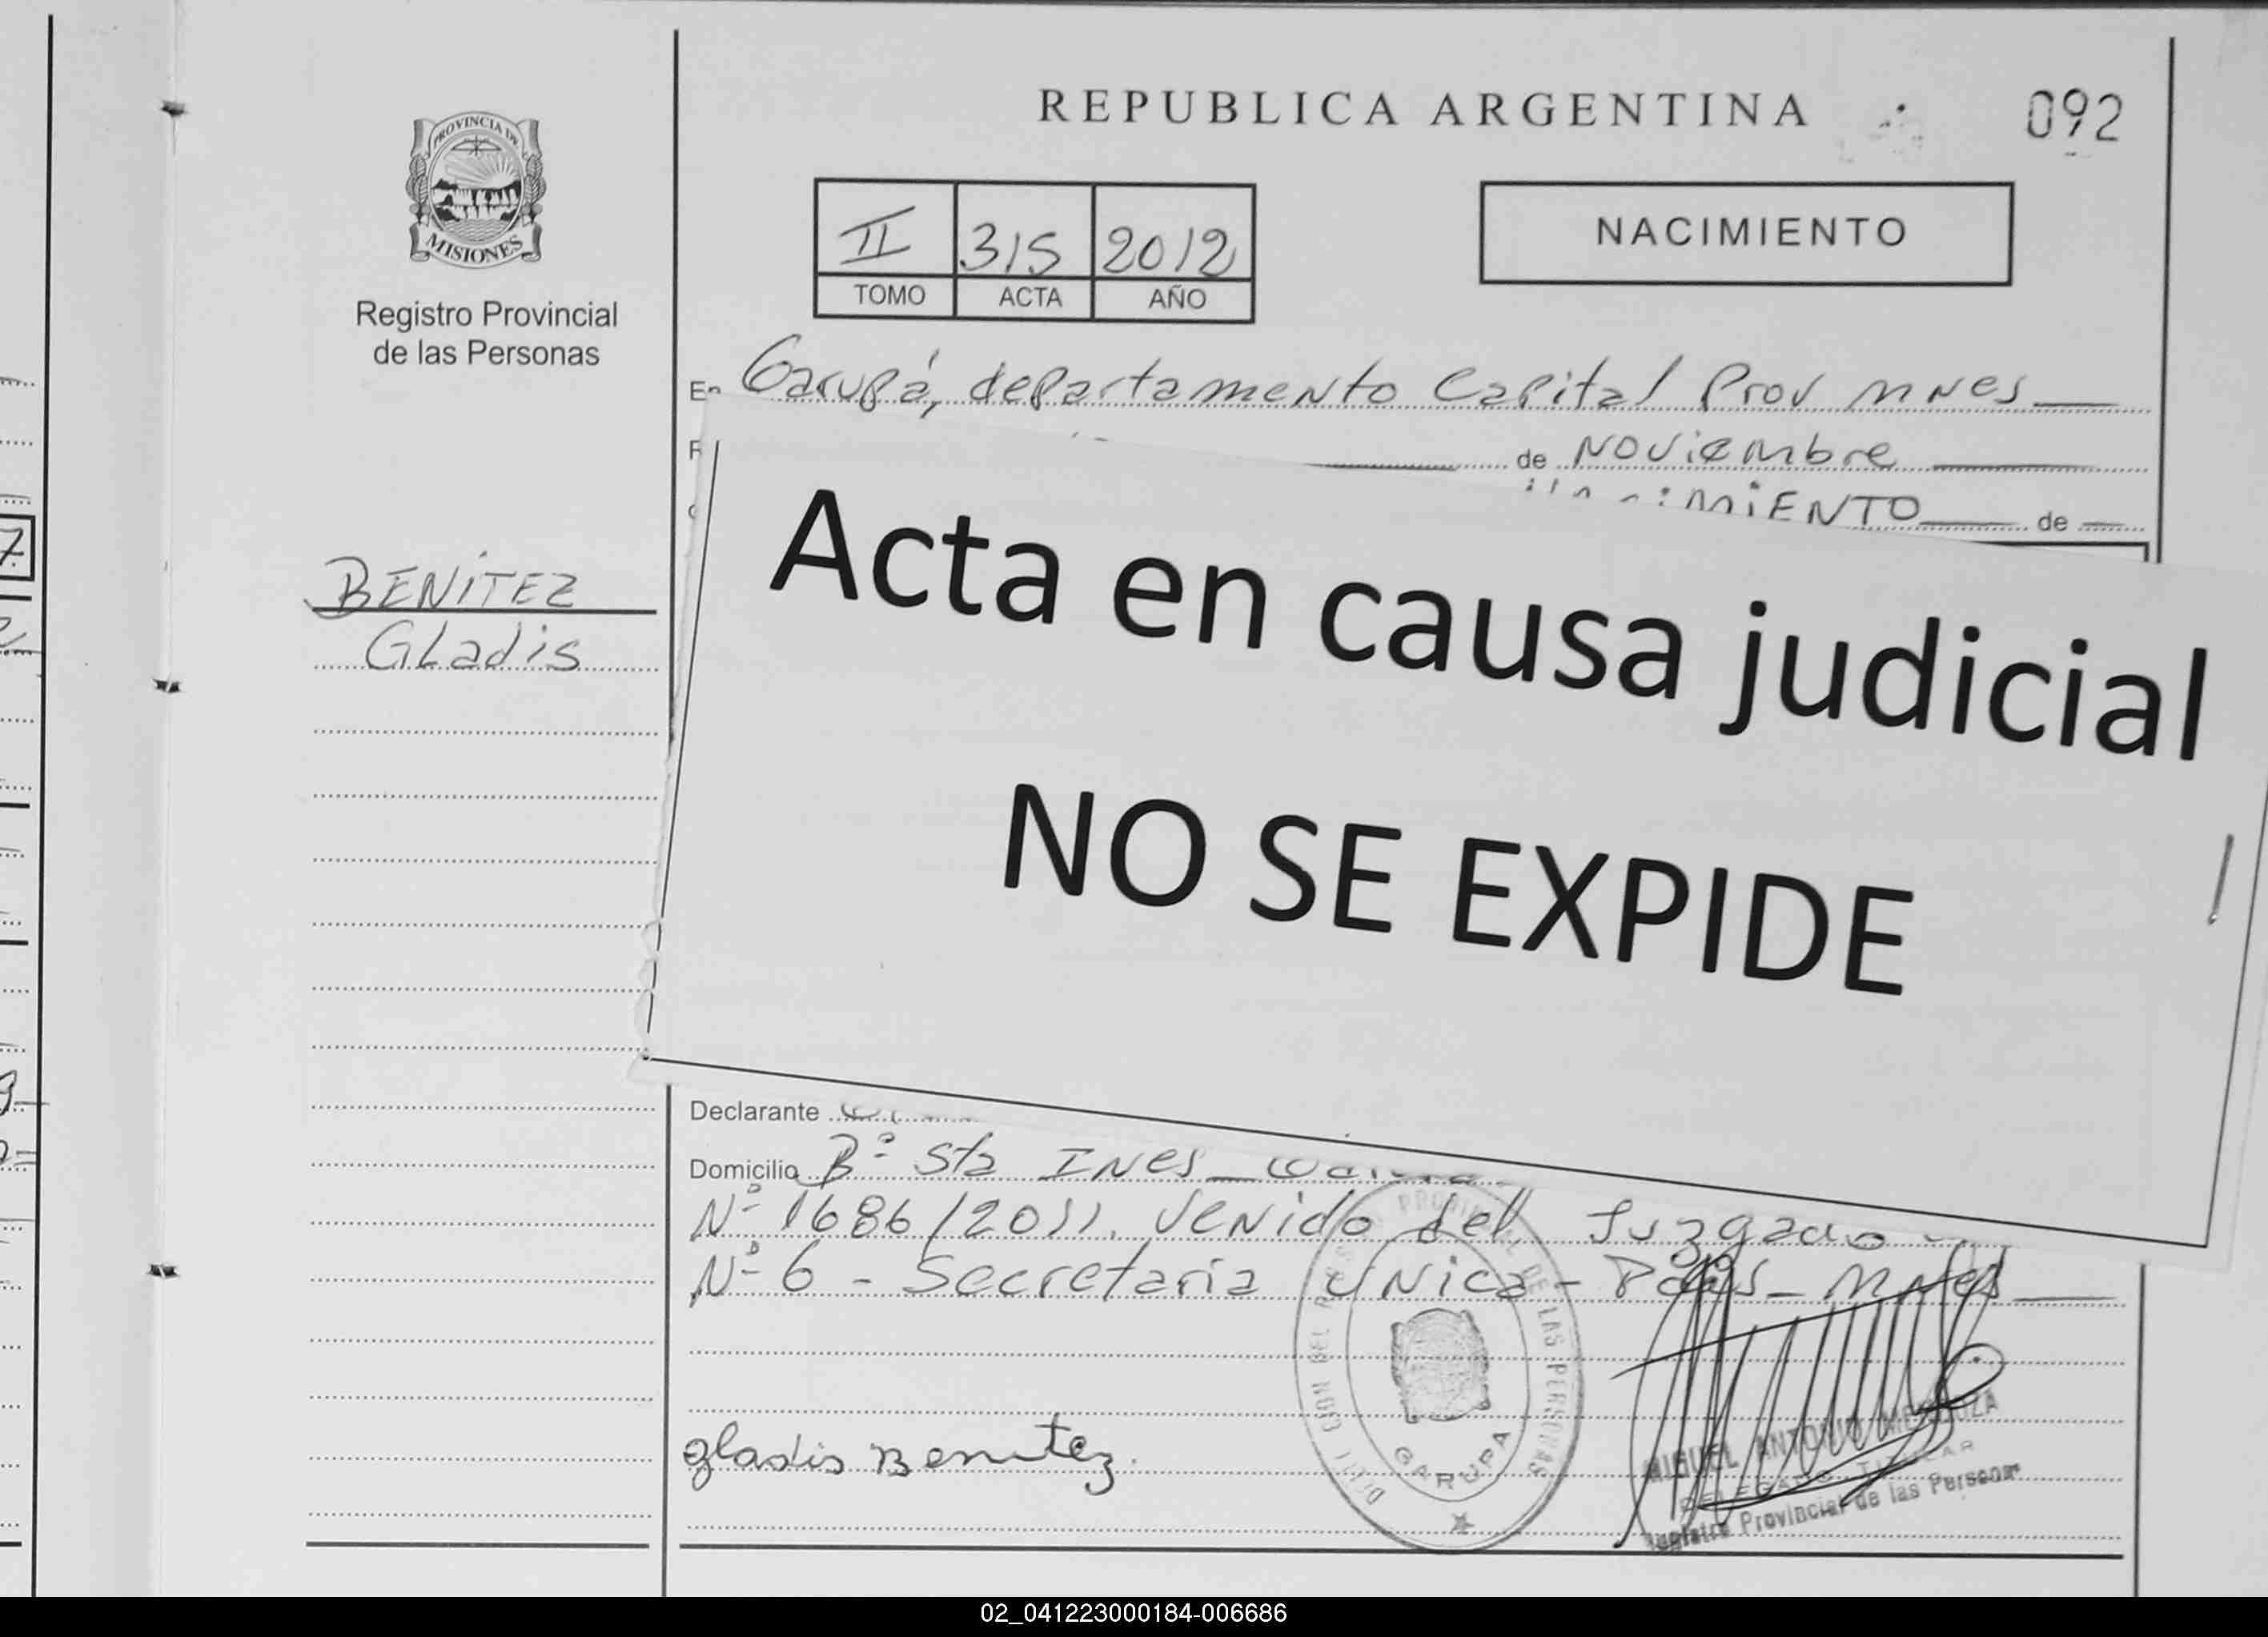 PROVINCIA DE
MISIONES
Registro Provincial
de las Personas
BENITEZ
GLadis
REPUBLICA ARGENTINA
092
II 315 2012
TOMO ACTA AÑO
NACIMIENTO
En Garupá, departamento Capital Prov MNes
de Noviembre
MiENTO de
Acta en causa judicial
NO SE EXPIDE
Declarante
Domicilio Bº Sta INes
Nº 1686/2011. Venido del Juzgado
Nº 6 - Secretaria UNica - Pdas - MNes
gladis Benitez.
DE LAS PERSONAS
GARUPA
MIGUEL ANTONIO MENDOZA
DELEGADO TITULAR
Registro Provincial de las Personas
02_041223000184-006686